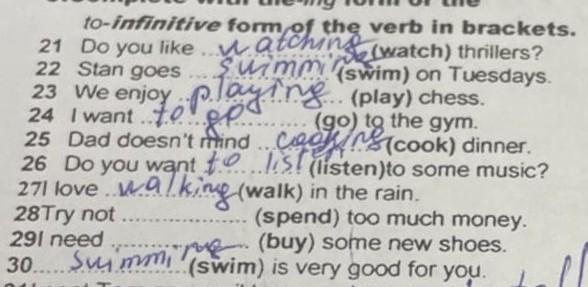 to-infinitive form of the verb in brackets.
21 Do you like ..watching (watch) thrillers?
22 Stan goes ...swimming (swim) on Tuesdays.
23 We enjoy playing... (play) chess.
24 I want ..to go............ (go) to the gym.
25 Dad doesn't mind ..cooking (cook) dinner.
26 Do you want to listen (listen)to some music?
27I love ..walking (walk) in the rain.
28Try not .................. (spend) too much money.
29I need ............... (buy) some new shoes.
30.....swimming (swim) is very good for you.